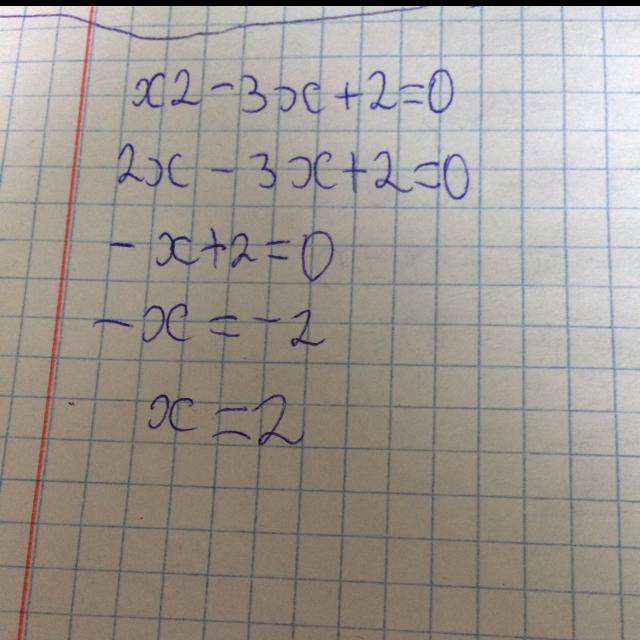 x2-3x+2=0
2x-3x+2=0
-x+2=0
-x=-2
x=2